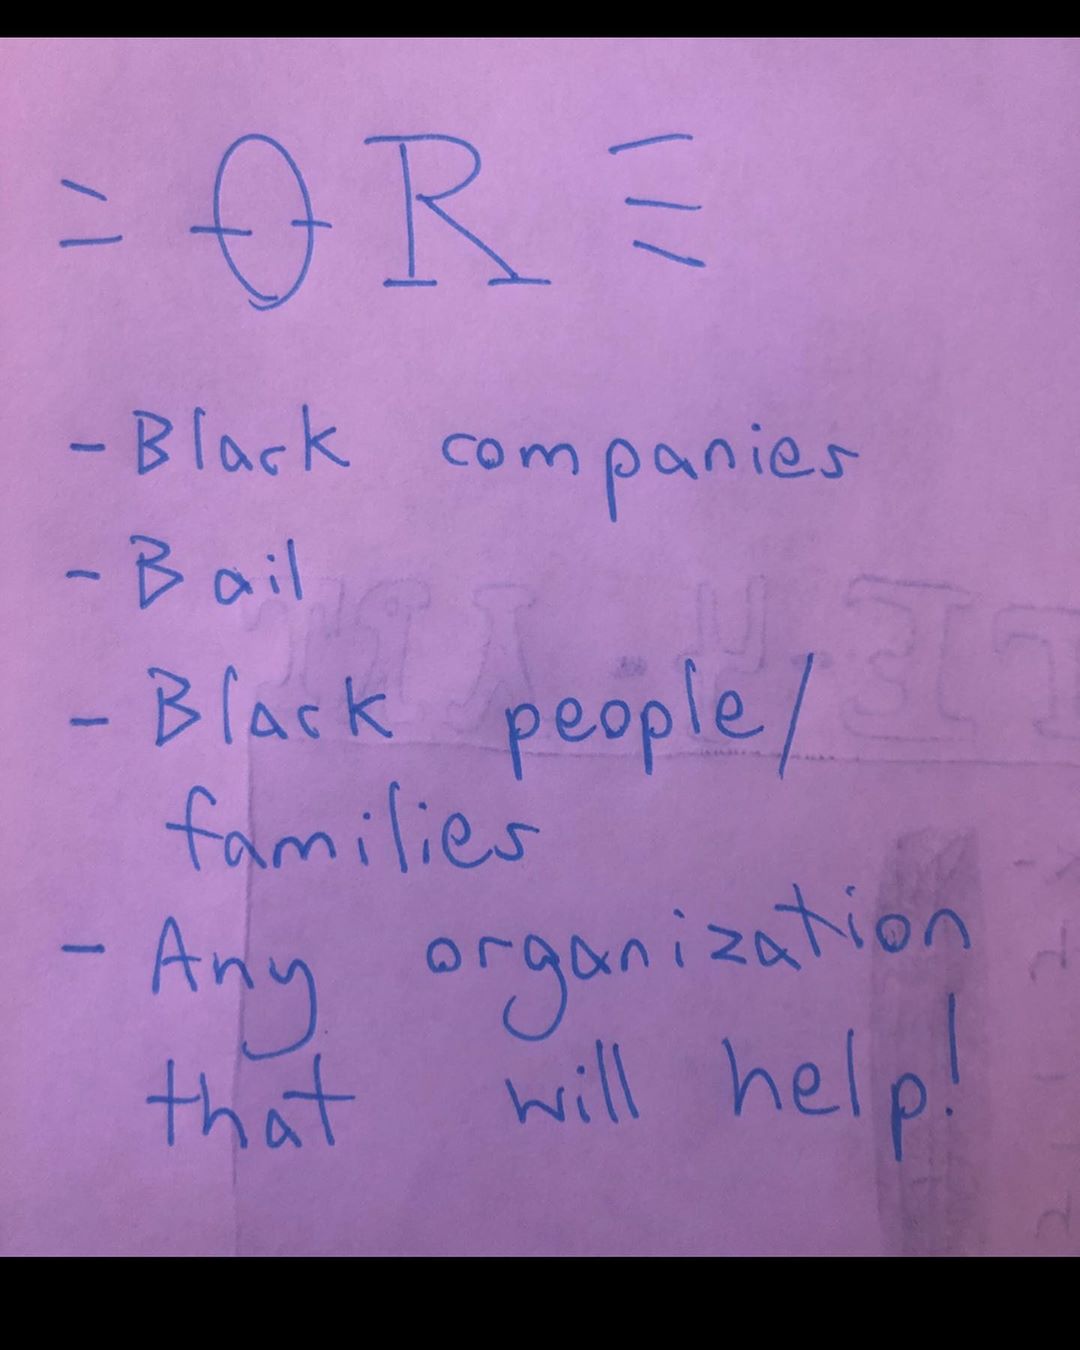 OR
- Black companies
- Bail
- Black people/
families
- Any organization
that will help!